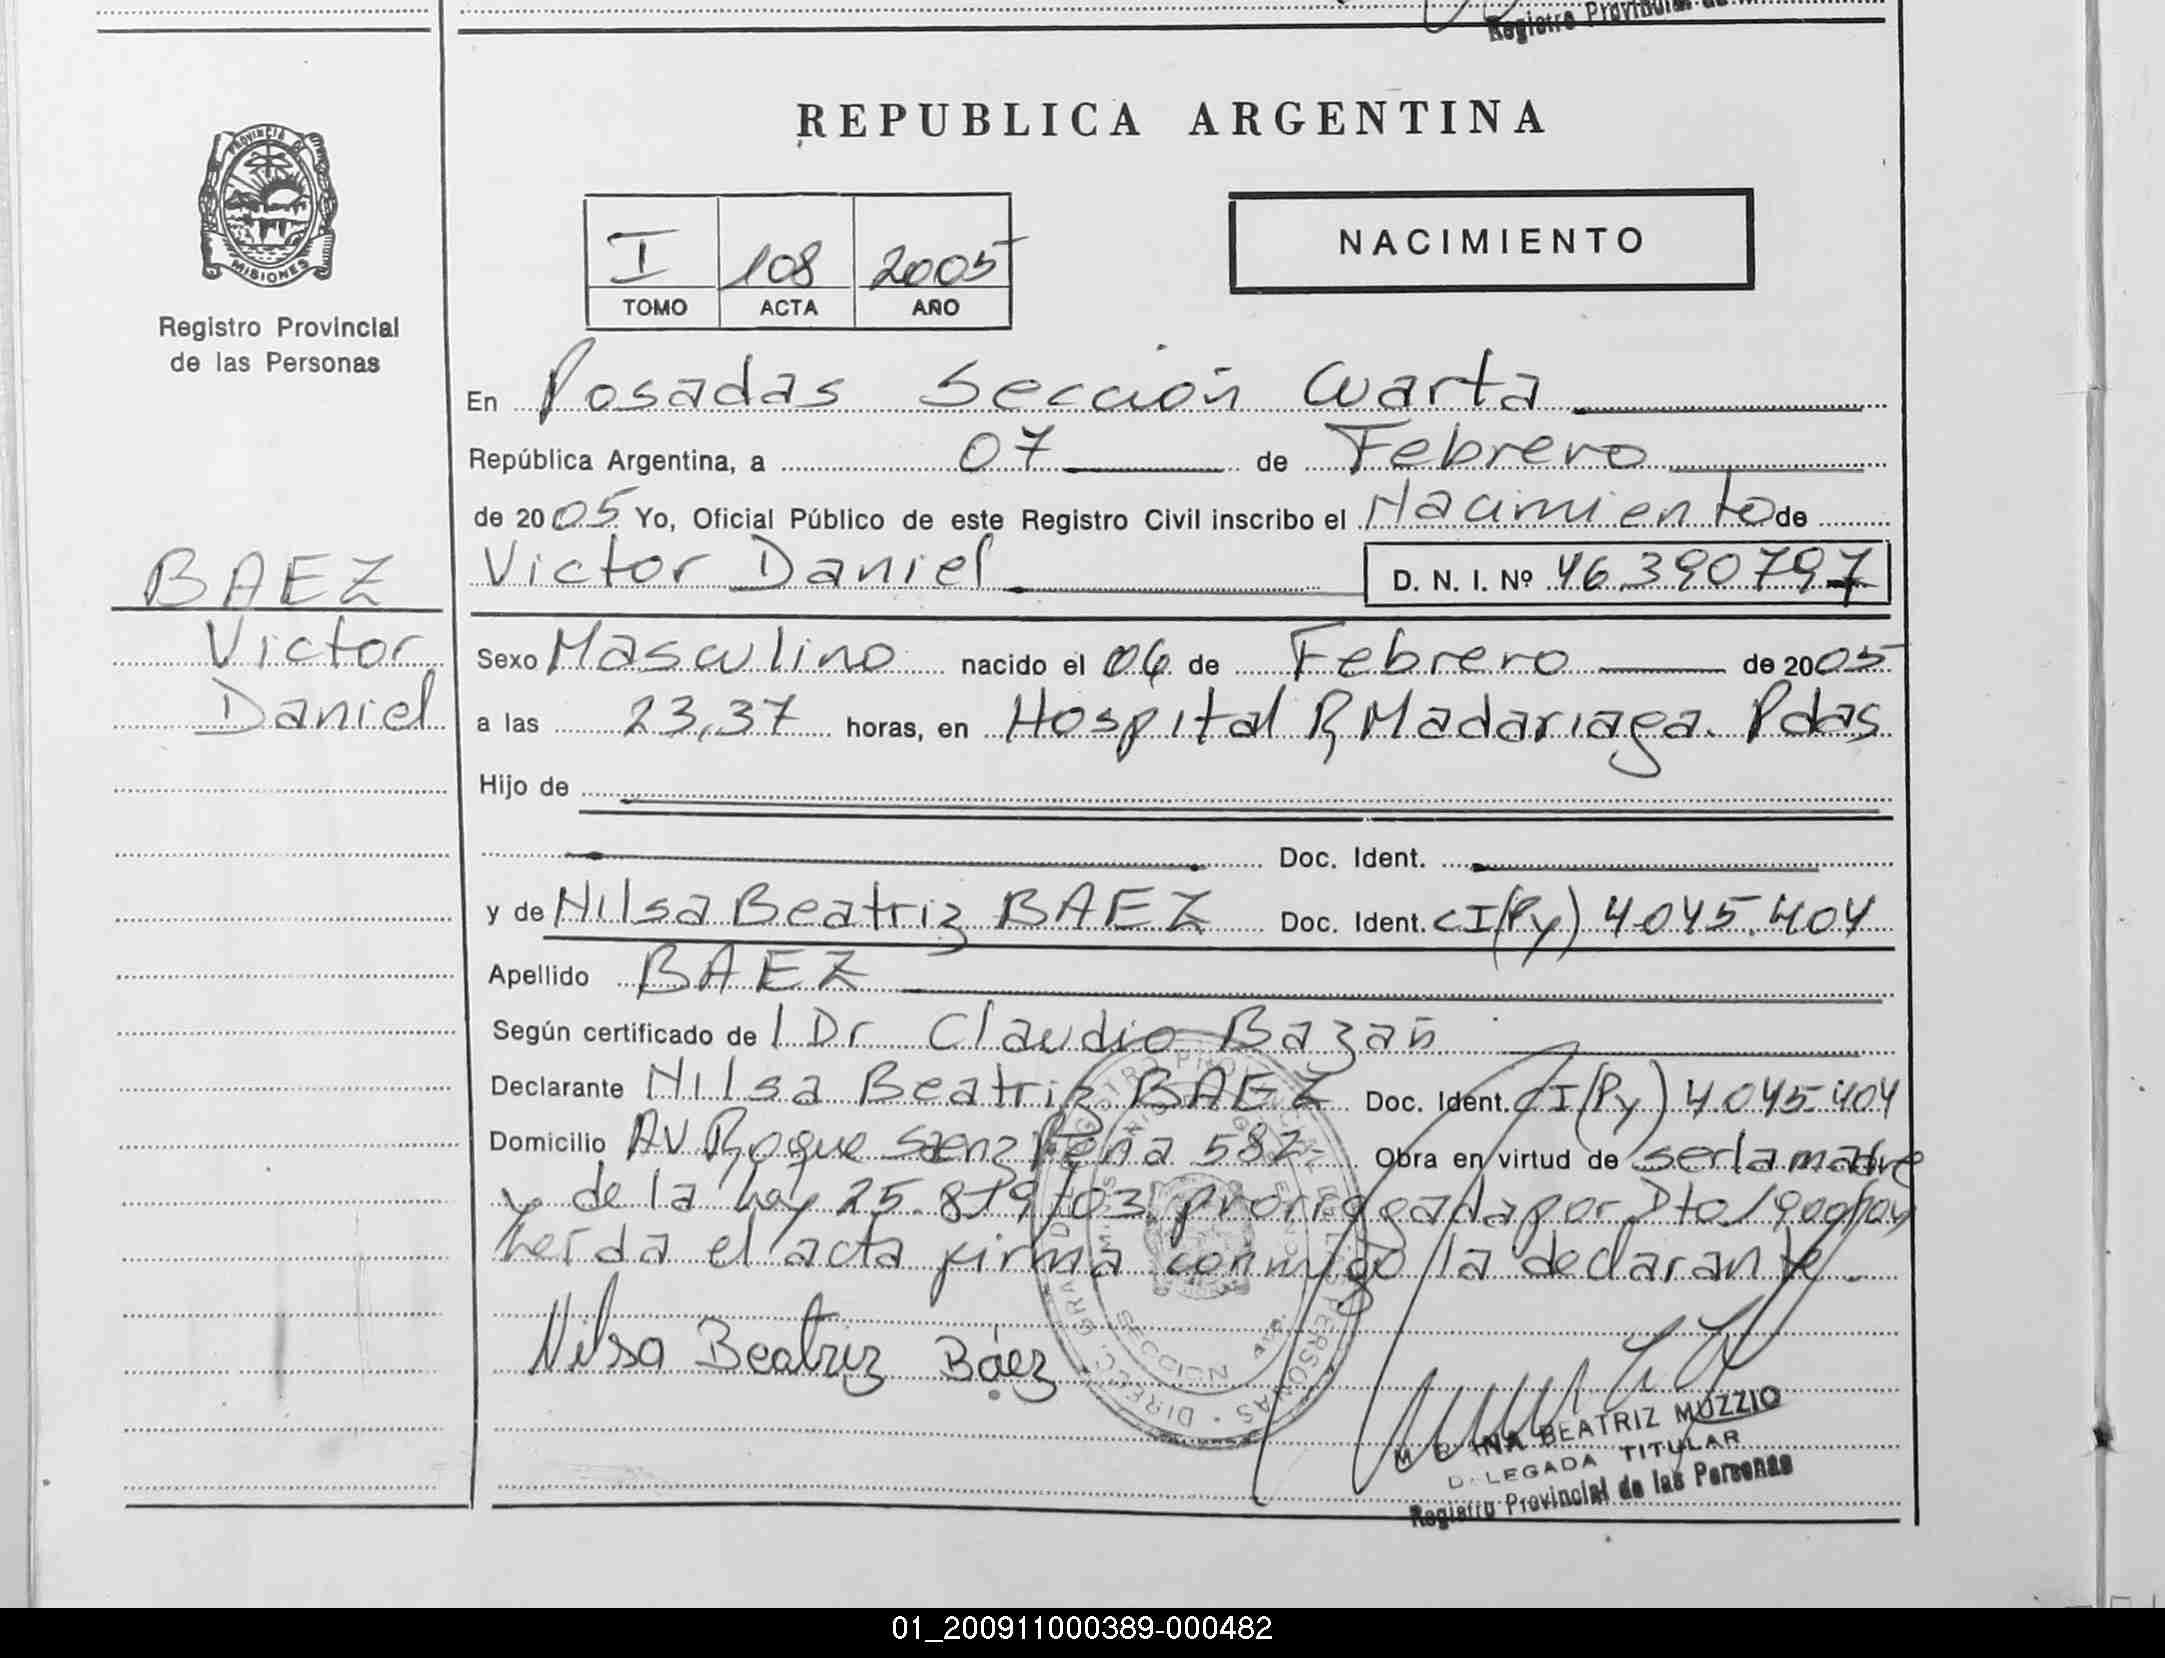 Registro Provincial de
REPUBLICA ARGENTINA
PROVINCIA
MISIONES
Registro Provincial
de las Personas
I 108 2005
TOMO ACTA AÑO
NACIMIENTO
En Posadas Sección Cuarta
República Argentina, a 07 de Febrero
de 2005 Yo, Oficial Público de este Registro Civil inscribo el Nacimiento de
Victor Daniel D. N. I. Nº 46.390797
BAEZ
Victor
Daniel
Sexo Masculino nacido el 06 de Febrero de 2005
a las 23,37 horas, en Hospital R, Madariaga. Pdas
Hijo de
Doc. Ident.
y de Nilsa Beatriz BAEZ Doc. Ident. CI(Py) 4.045.404
Apellido BAEZ
Según certificado de l Dr Claudio Bazan
Declarante Nilsa Beatriz BAEZ Doc. Ident. CI(Py) 4.045.404
Domicilio AV Roque Saenz Peña 582 Obra en virtud de ser la madre
y de la Ley 25.819/03 prorrogada por Dto 1900/04
Leída el acta firma conmigo la declarante.
Nilsa Beatriz Báez
BEATRIZ MUZZIO
DELEGADA TITULAR
Registro Provincial de las Personas
01_200911000389-000482